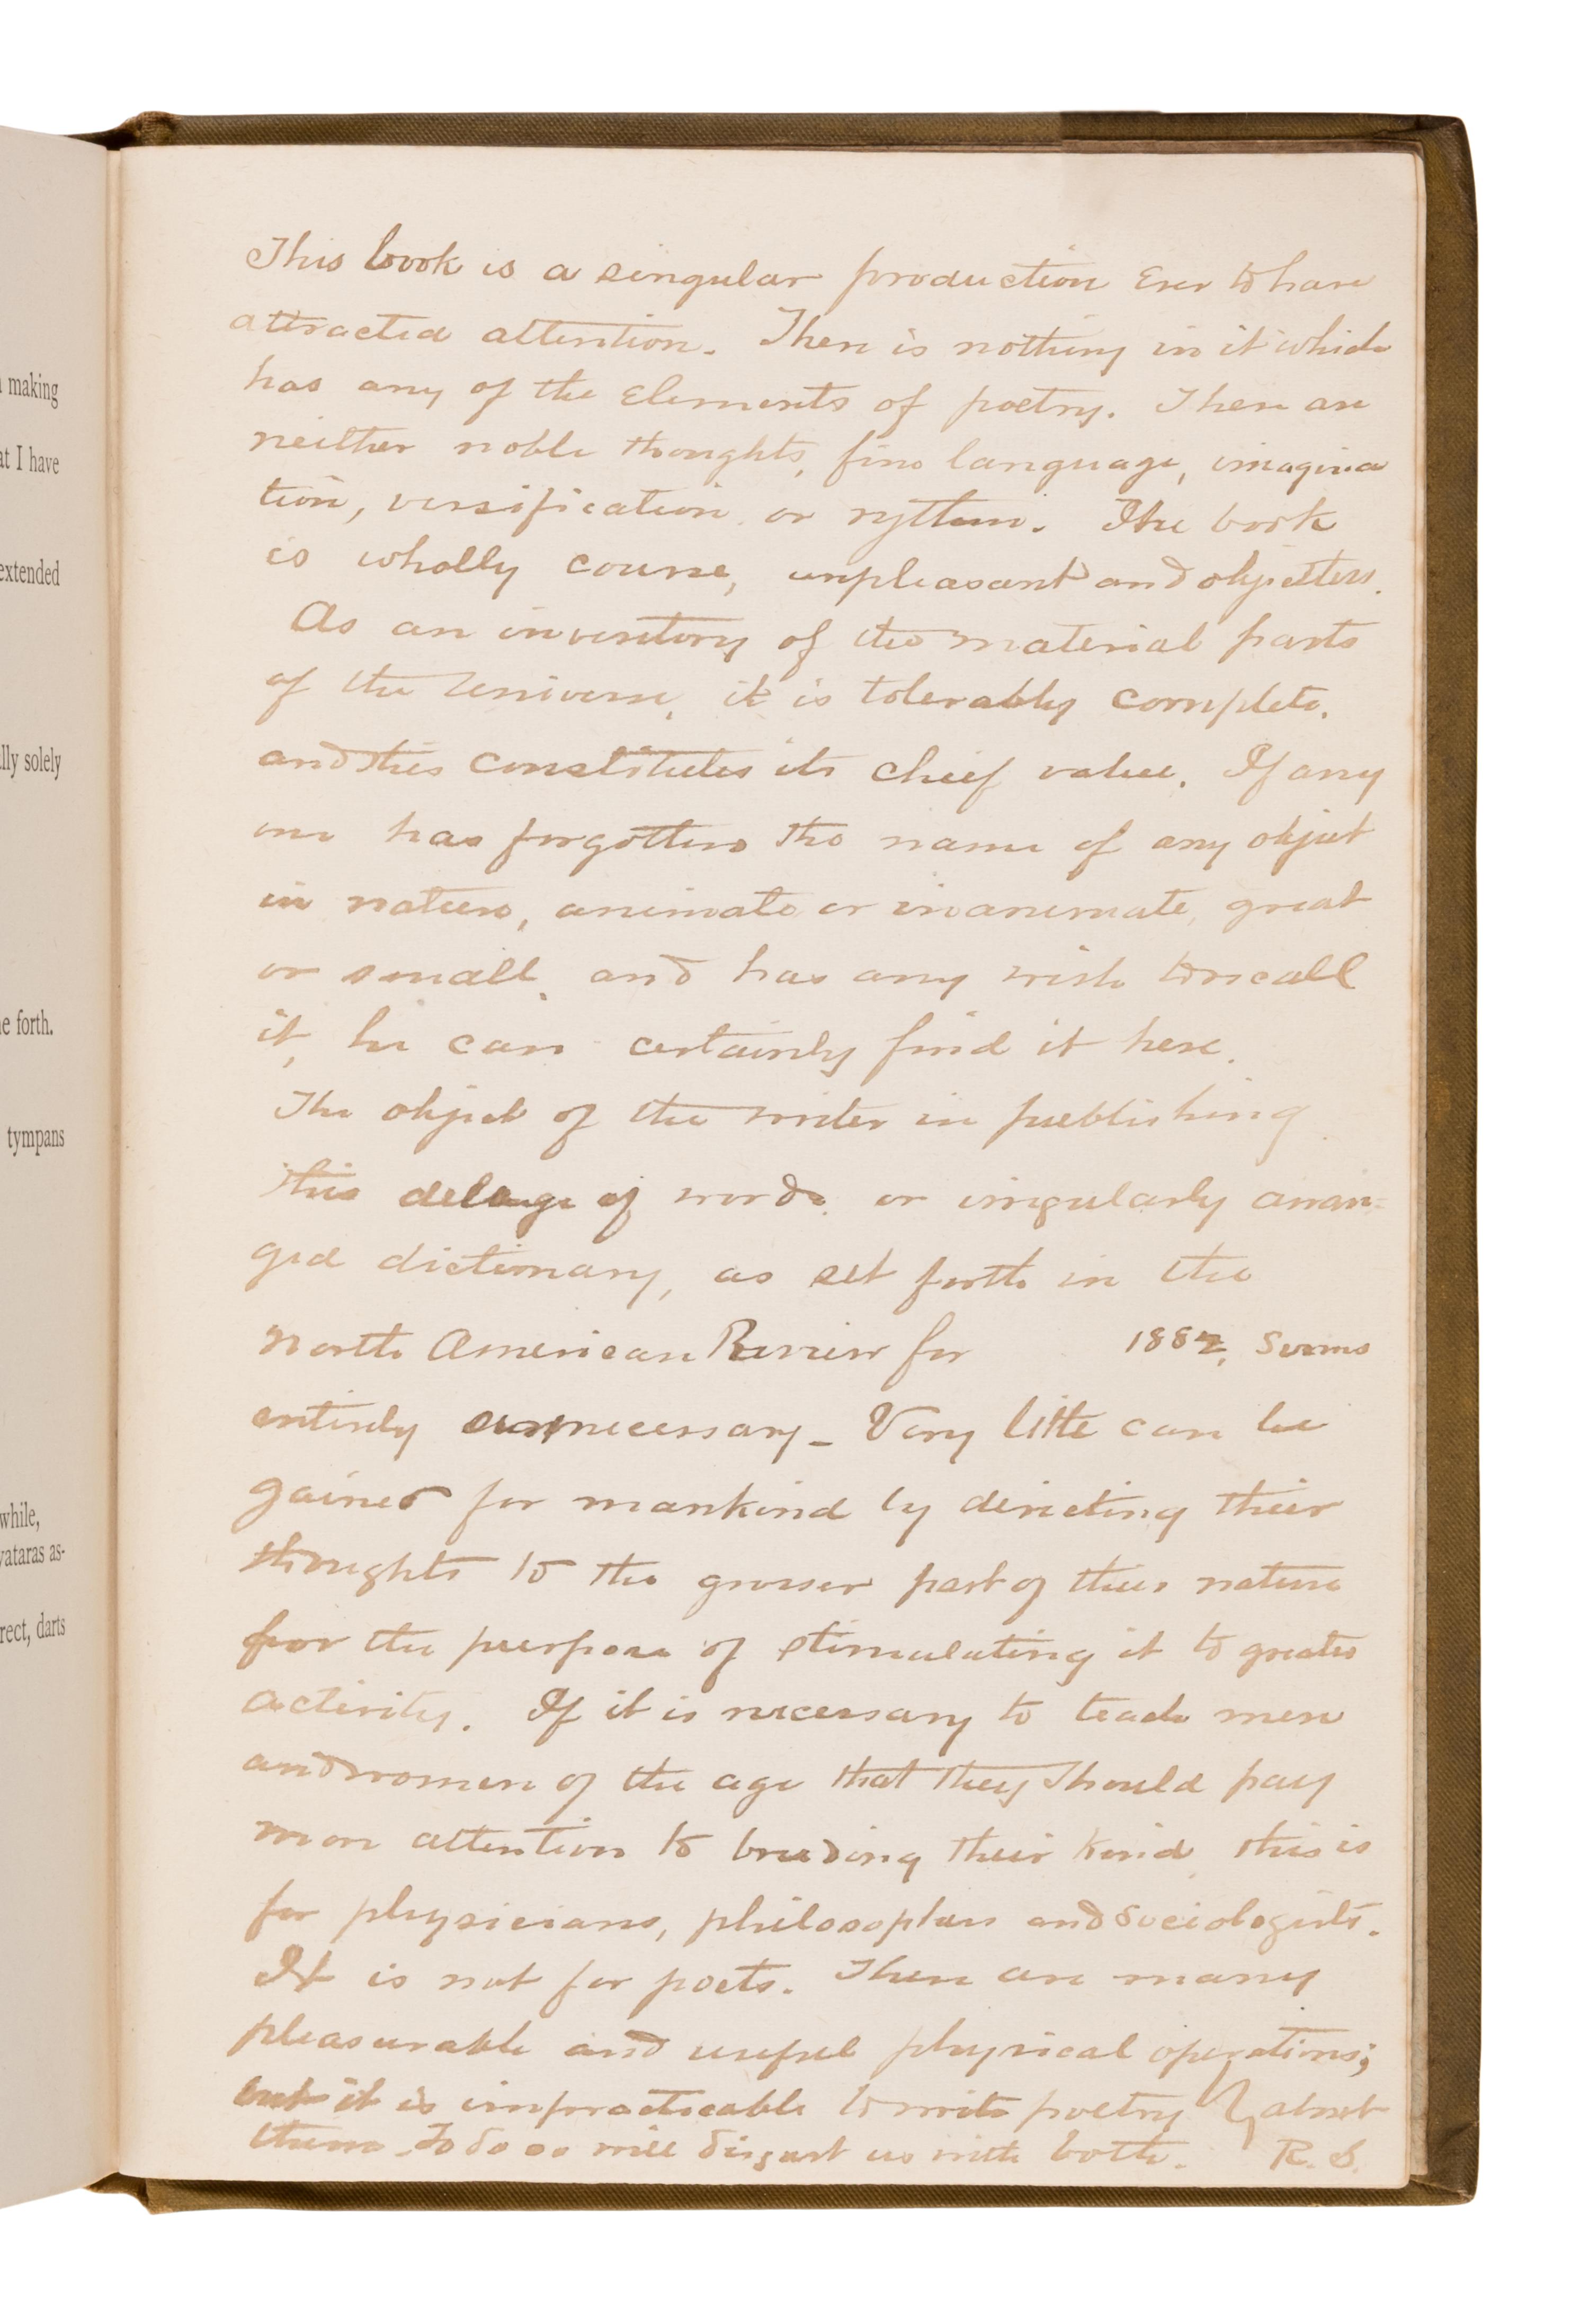 making
at I have
extended
lly solely
e forth.
tympans
while,
vataras as-
rect, darts
This book is a singular production ever to have
attracted attention. There is nothing in it which
has any of the elements of poetry. There are
neither noble thoughts, fine language, imagina
tion, versification, or rythm. The book
is wholly course, unpleasant and objectless.
As an inventory of the material parts
of the Universe, it is tolerably complete,
and this constitutes its chief value. If any
one has forgotten the name of any object
in nature, animate or inanimate, great
or small, and has any wish to recall
it, he can certainly find it here.
The object of the writer in publishing
this deluge of words, or irregularly arran-
ged dictionary, as set forth in the
North American Review for 1882, seems
entirely unnecessary - Very little can be
gained for mankind by directing their
thoughts to the grosser part of their nature
for the purpose of stimulating it to greater
activity. If it is necessary to teach men
and women of the age that they should pay
more attention to breeding their kind, this is
for physicians, philosophers and sociologists.
It is not for poets. There are many
pleasurable and useful physical operations;
but it is impracticable to write poetry about
them. To do so will disgust us with both. R. S.